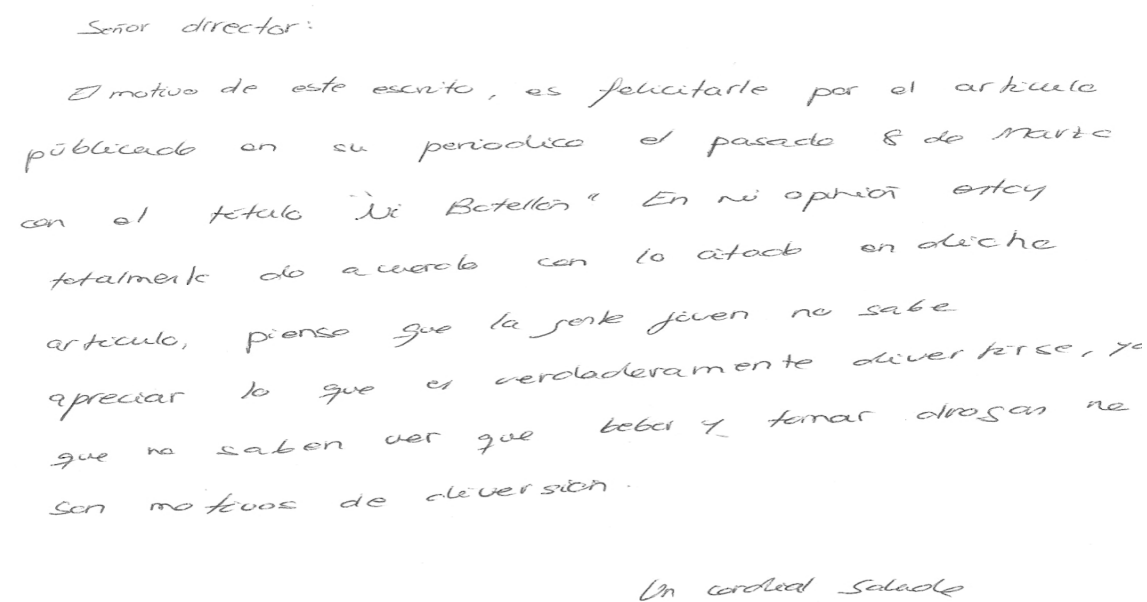 Señor director:
El motivo de este escrito, es felicitarle por el articulo
públicado en su periodico el pasado 8 de Marzo
con el título "Ni Botellón" En mi opinión estoy
totalmente de acuerdo con lo citado en dicho
articulo, pienso que la gente jóven no sabe
apreciar lo que es verdaderamente divertirse, ya
que no saben ver que beber y tomar drogas no
son motivos de diversión.
Un cordial Saludo